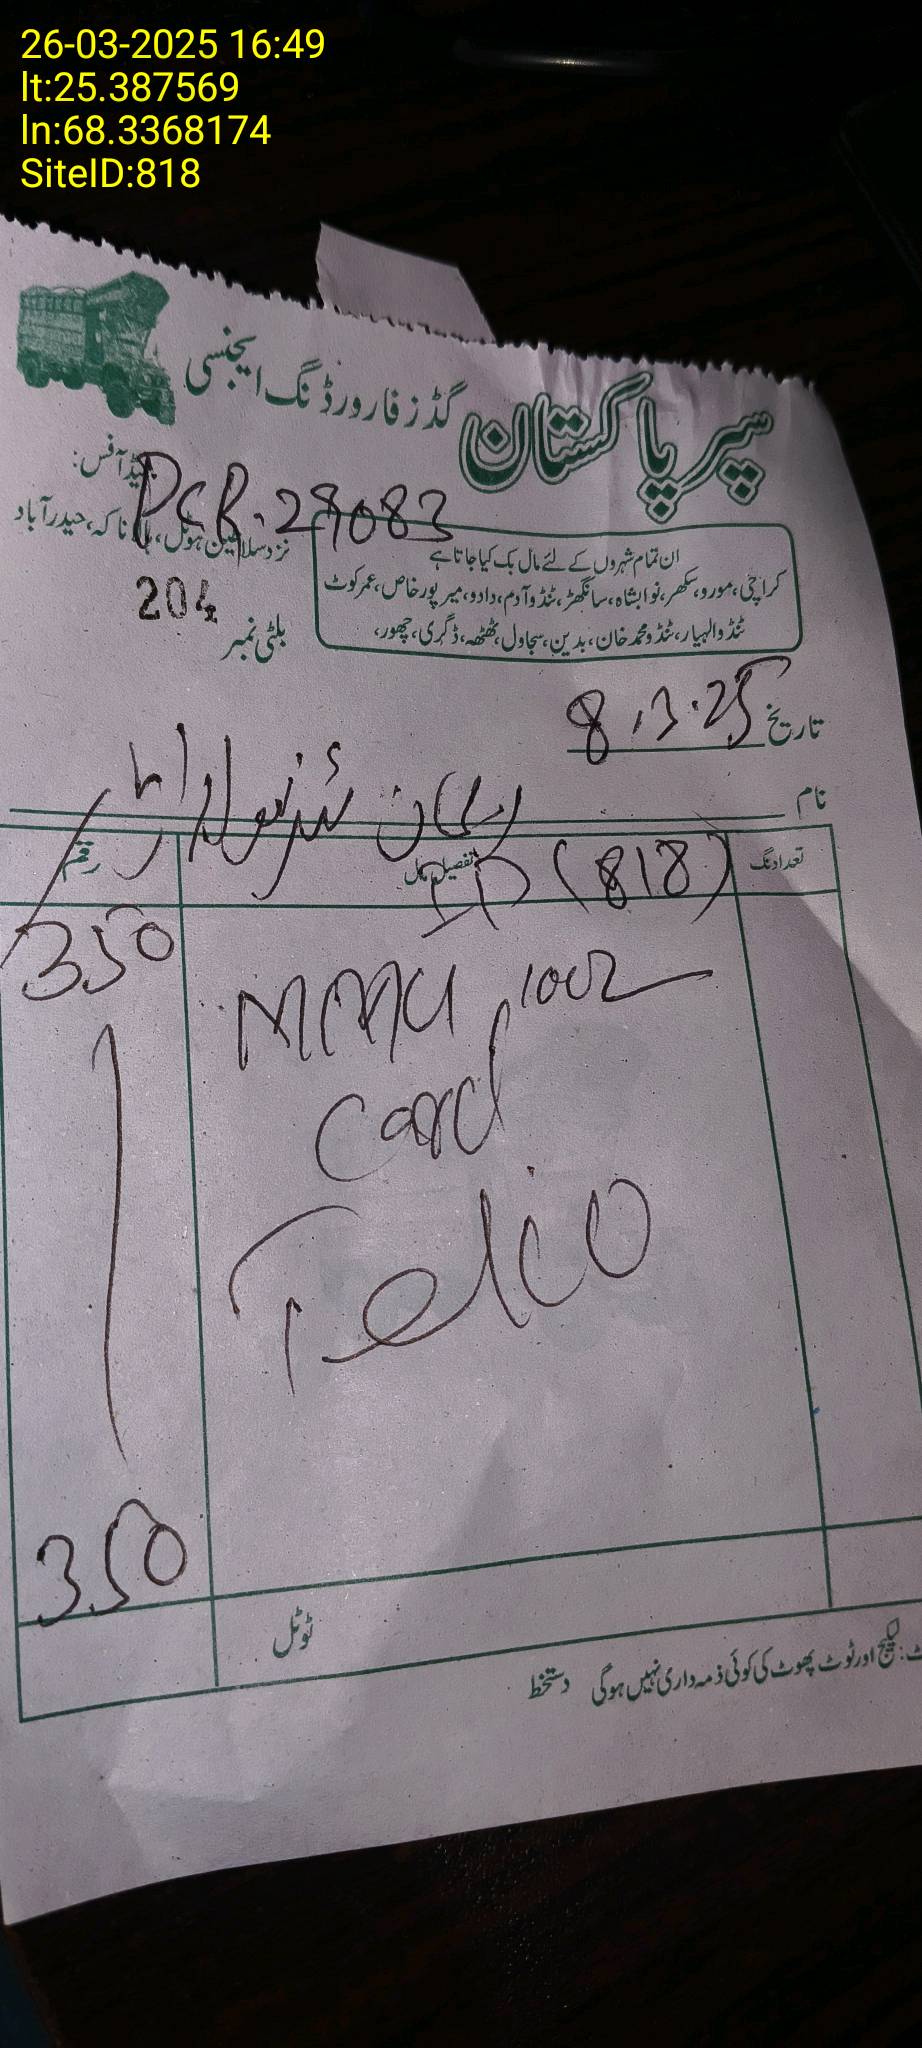 26-03-2025 16:49
lt:25.387569
ln:68.3368174
SiteID:818
سپر پاکستان گڈز فارورڈنگ ایجنسی
ہیڈ آفس:
نزد سلاطین ہوٹل، ہالا ناکہ، حیدرآباد
29083
ان تمام شہروں کے لئے مال بک کیا جاتا ہے
کراچی، مورو، سکھر، نوابشاہ، سانگھڑ، ٹنڈوآدم، دادو، میرپورخاص، عمرکوٹ
ٹنڈوالہیار، ٹنڈومحمدخان، بدین، سجاول، ٹھٹھہ، ڈگری، چھور،
بلٹی نمبر 204
تاریخ 8.3.25
نام
تعداد نگ تفصیل مال رقم
ID (818)
350
card
Telco
350
ٹوٹل
لیکیج اور ٹوٹ پھوٹ کی کوئی ذمہ داری نہیں ہوگی دستخط